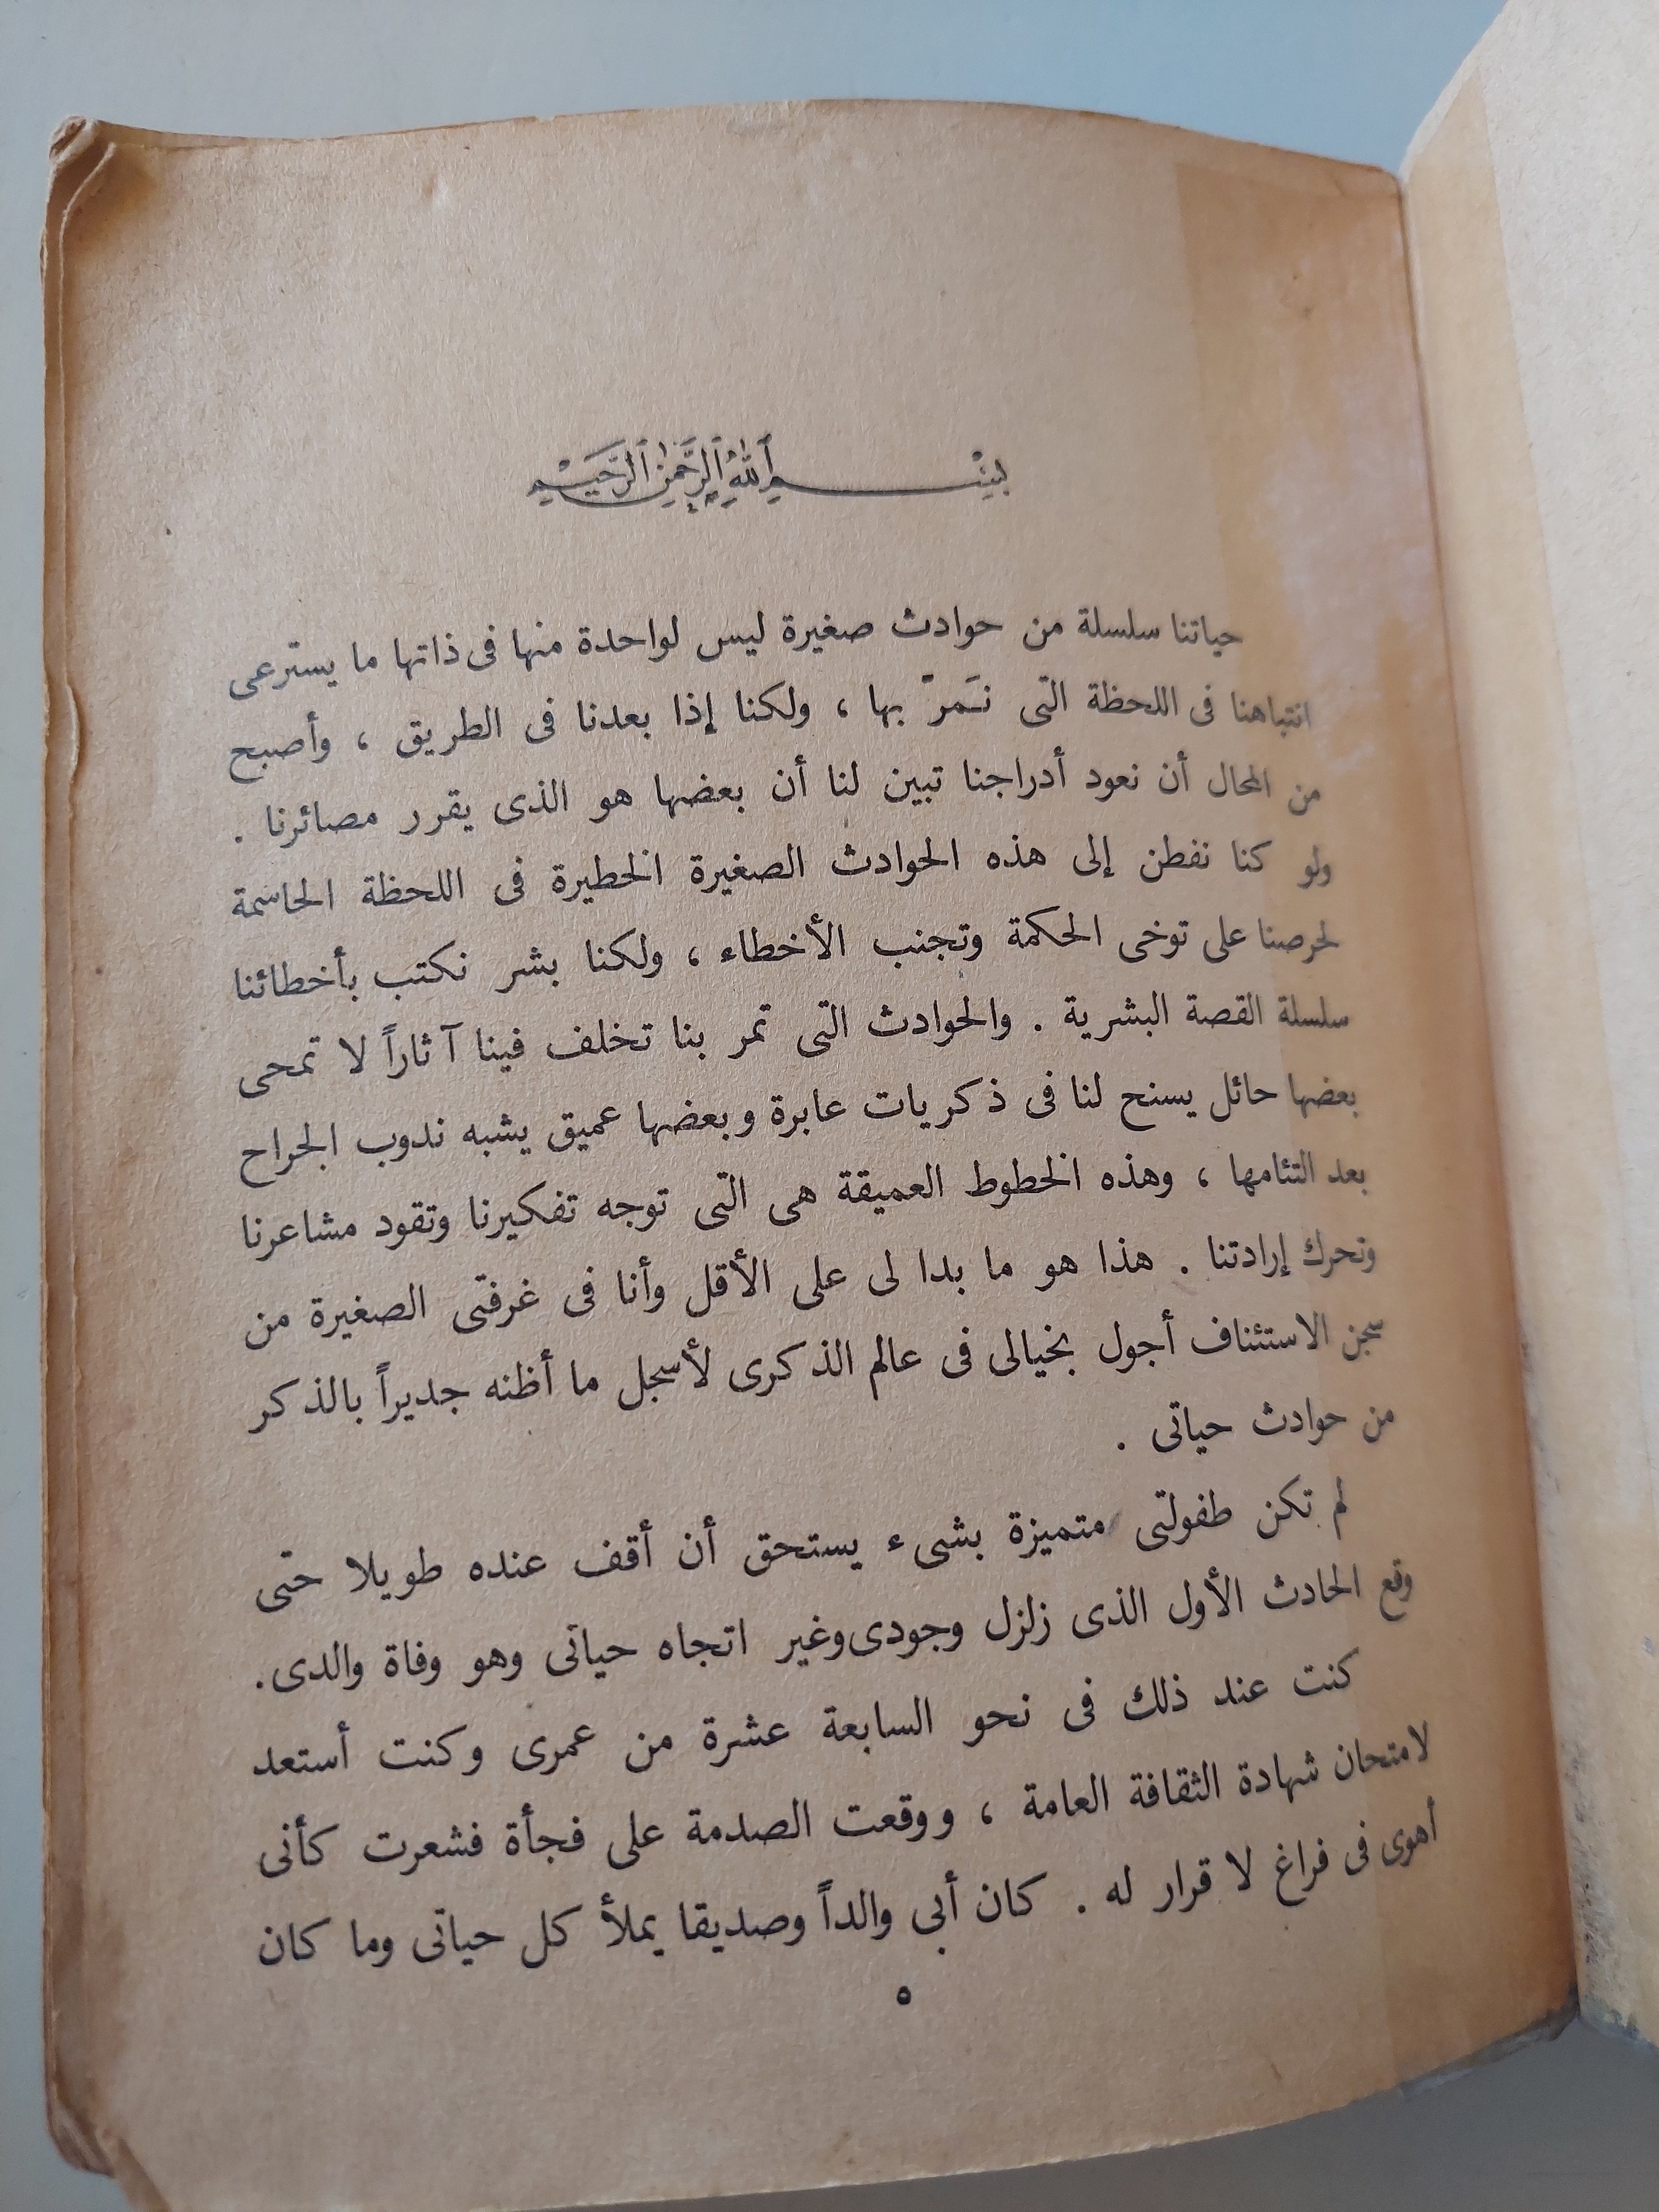 بسم الله الرحمن الرحيم
حياتنا سلسلة من حوادث صغيرة ليس لواحدة منها فى ذاتها ما يسترعى
انتباهنا فى اللحظة التى نَمرّ بها ، ولكنا إذا بعدنا فى الطريق ، وأصبح
من المحال أن نعود أدراجنا تبين لنا أن بعضها هو الذى يقرر مصائرنا .
ولو كنا نفطن إلى هذه الحوادث الصغيرة الخطيرة فى اللحظة الحاسمة
لحرصنا على توخى الحكمة وتجنب الأخطاء ، ولكنا بشر نكتب بأخطائنا
سلسلة القصة البشرية . والحوادث التى تمر بنا تخلف فينا آثاراً لا تمحى
بعضها حائل يسنح لنا فى ذكريات عابرة وبعضها عميق يشبه ندوب الجراح
بعد التئامها ، وهذه الخطوط العميقة هى التى توجه تفكيرنا وتقود مشاعرنا
وتحرك إرادتنا . هذا هو ما بدا لى على الأقل وأنا فى غرفتى الصغيرة من
سجن الاستئناف أجول بخيالى فى عالم الذكرى لأسجل ما أظنه جديراً بالذكر
من حوادث حياتى .
لم تكن طفولتى متميزة بشىء يستحق أن أقف عنده طويلا حتى
وقع الحادث الأول الذى زلزل وجودى وغير اتجاه حياتى وهو وفاة والدى.
كنت عند ذلك فى نحو السابعة عشرة من عمرى وكنت أستعد
لامتحان شهادة الثقافة العامة ، ووقعت الصدمة على فجأة فشعرت كأنى
أهوى فى فراغ لا قرار له . كان أبي والداً وصديقا يملأ كل حياتى وما كان
٥